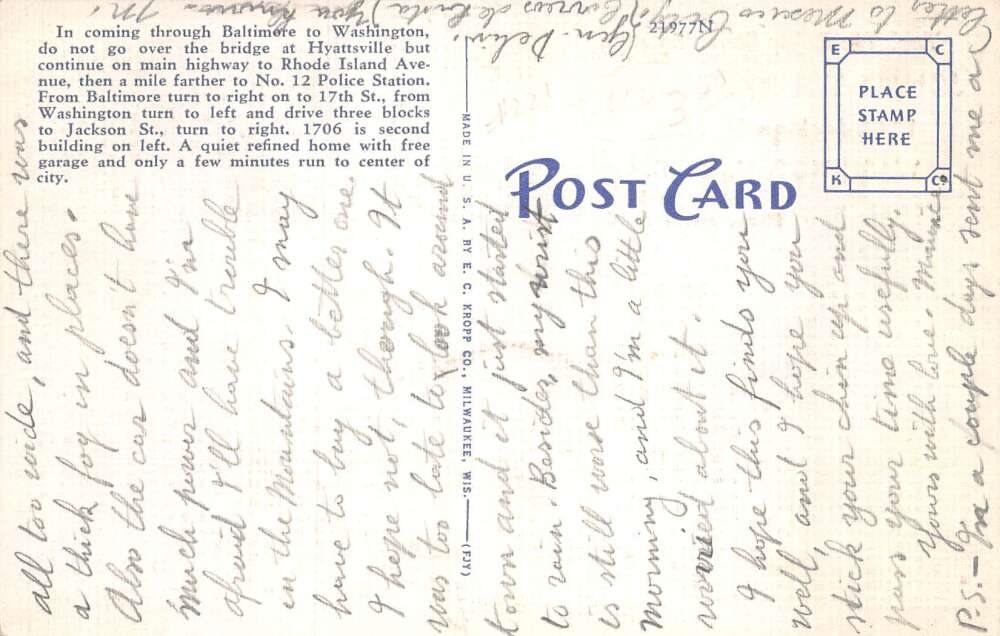 In coming through Baltimore to Washington,
do not go over the bridge at Hyattsville but
continue on main highway to Rhode Island Ave-
nue, then a mile farther to No. 12 Police Station.
From Baltimore turn to right on to 17th St., from
Washington turn to left and drive three blocks
to Jackson St., turn to right. 1706 is second
building on left. A quiet refined home with free
garage and only a few minutes run to center of
city.
21977N
E C
K Co
PLACE
STAMP
HERE
POST CARD
MADE IN U. S. A. BY E. C. KROPP CO., MILWAUKEE, WIS. (FJY)
all too wide, and there was
a thick fog in places.
Also the car doesn't have
much power and I'm
afraid I'll have trouble
in the Mountains. I may
have to buy a better one.
I hope not, though. It
was too late to look around
town and it just started
to rain. Besides, my wrist
is still worse than this
morning, and I'm a little
worried about it.
I hope this finds you
well, and I hope you
stick your chin up and
pass your time usefully.
Yours with love. Maurice
P.S. - In a couple days sent me a
letter to Mexico City (Correos de Lista)
Gen. Deliv. You know. M.